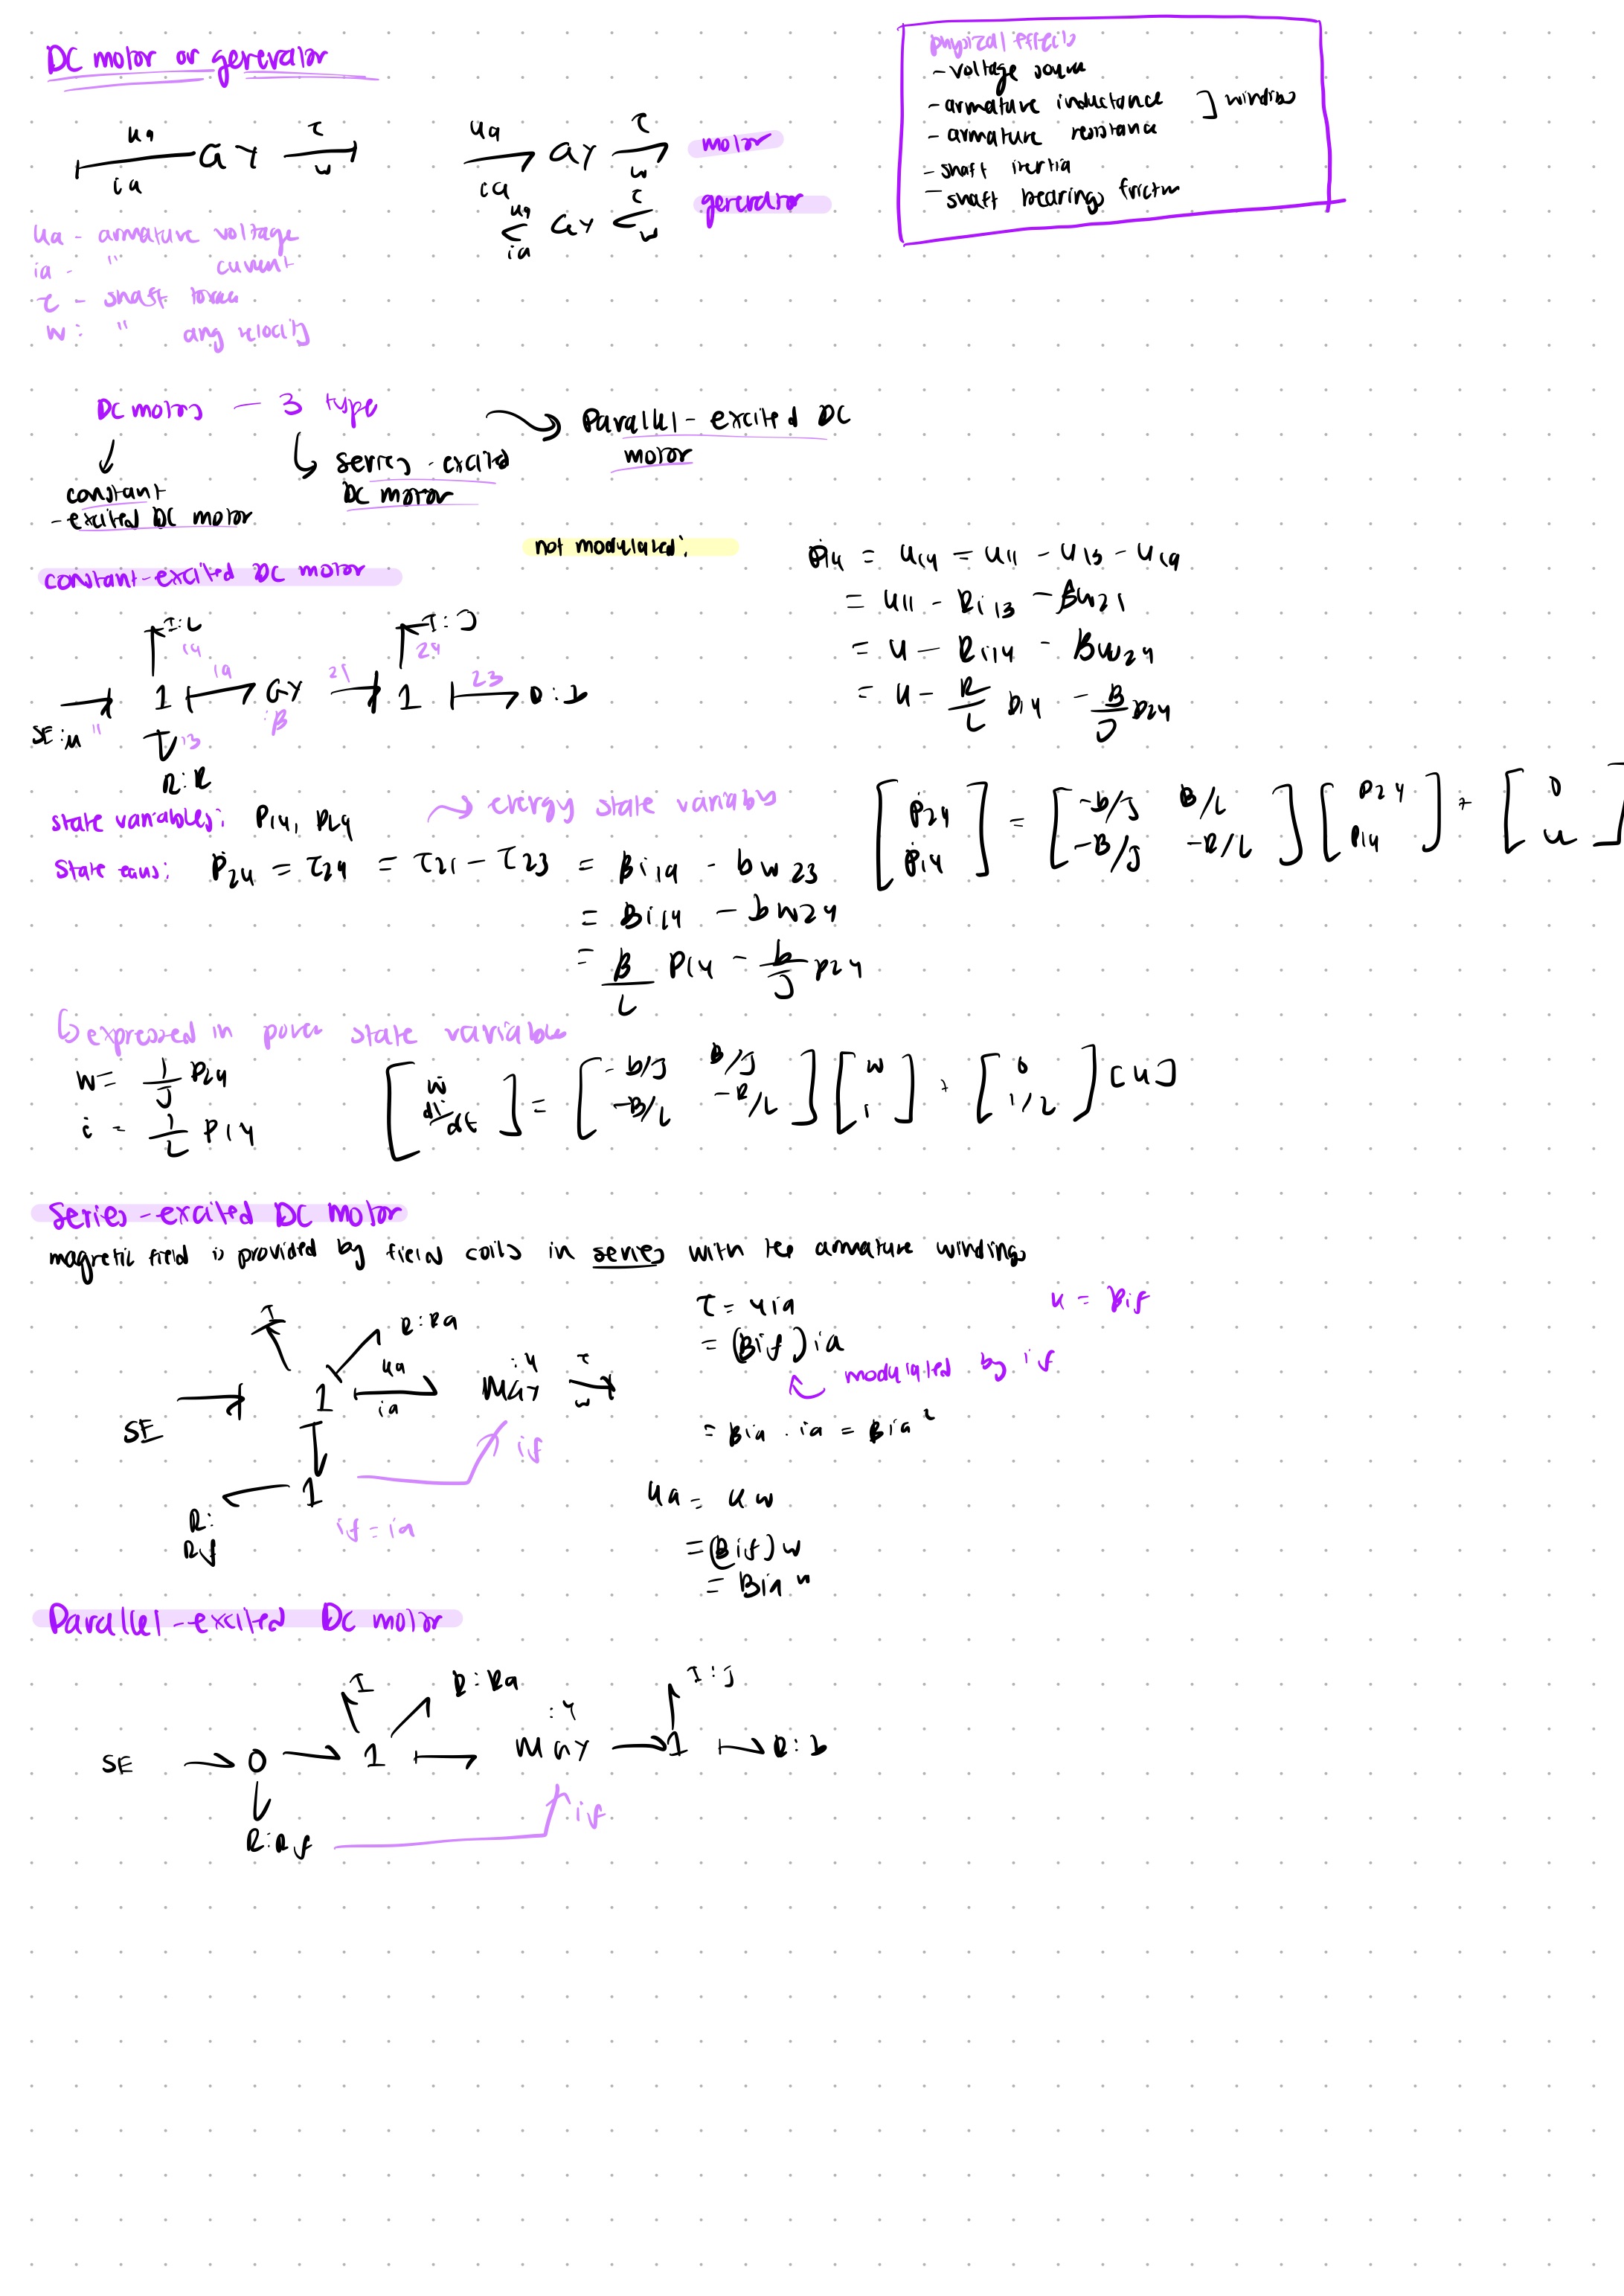 DC motor or generator
ua τ
GY
ia w
ua τ
GY motor
ia w
ua τ
GY generator
ia w
physical effects
- voltage source
- armature inductance ] windings
- armature resistance
- shaft inertia
- shaft bearings friction
ua - armature voltage
ia - " current
τ - shaft torque
w : " ang velocity
DC motors — 3 type
Parallel-excited DC
motor
series-excited
DC motor
constant
-excited DC motor
not modulated:
constant-excited DC motor
I:L I:J
14 24
19 21 23
1 GY 1 R:b
SE:u 11 13 :β
R:R
ṗ14 = u14 = u11 - u13 - u19
= u11 - Ri13 - βw21
= u - Ri14 - Bw24
= u - R/L p14 - B/J p24
state variables: P14, P24 → energy state variables
state eqns: Ṗ24 = τ24 = τ21 - τ23 = βi19 - bw23
= Bi14 - bw24
= β/L P14 - b/J P24
[ṗ24 ṗ14] = [-b/J B/L -B/J -R/L] [P24 P14] + [0 u]
expressed in power state variables
w = 1/J P24
i = 1/L P14
[ẇ di/dt] = [-b/J B/J -B/L -R/L] [w i] + [0 1/L] [u]
series-excited DC motor
magnetic field is provided by field coils in series with the armature windings
I R:Ra
ua :Ψ τ
SE 1 MGY
ia w
if
1
R:
Rf
if = ia
τ = Ψia
= (Bif)ia
modulated by if
= Bia · ia = Bia²
Ψ = Bif
ua = Ψw
= (Bif)w
= Biaw
Parallel-excited DC motor
I R:Ra I:J
:Ψ
SE 0 1 MGY 1 R:b
R:Rf if